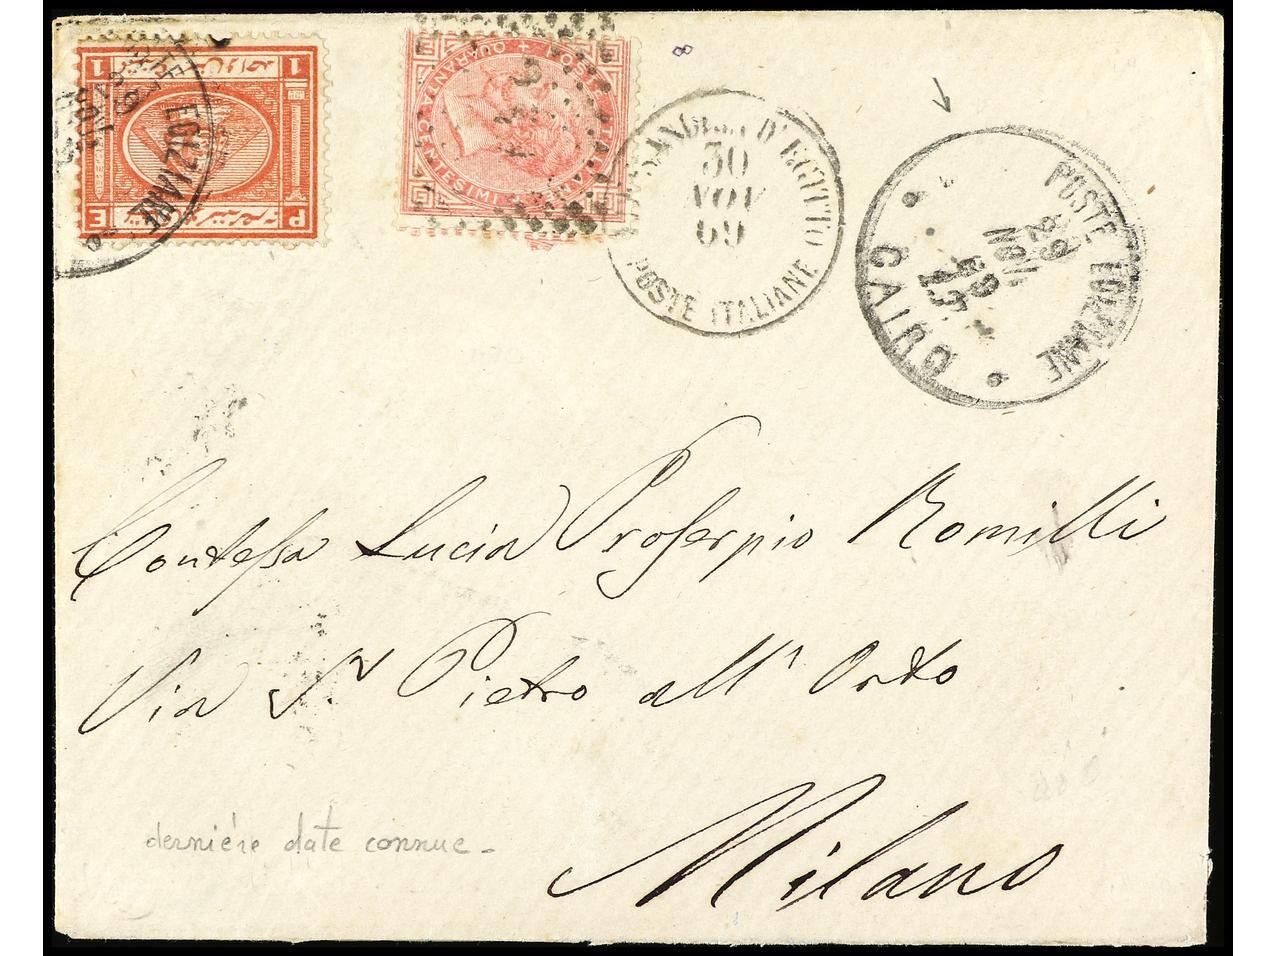 1 1
P E
POSTE EGIZIANE
QUARANTA CENTESIMI
ALESSANDRIA D'EGITTO
30
NOV
69
POSTE ITALIANE
POSTE EGIZIANE
29
NOV
CAIRO
Contessa Lucia Proserpio Romilli
Via S.n Pietro all' Orto
Milano
dernière date connue -